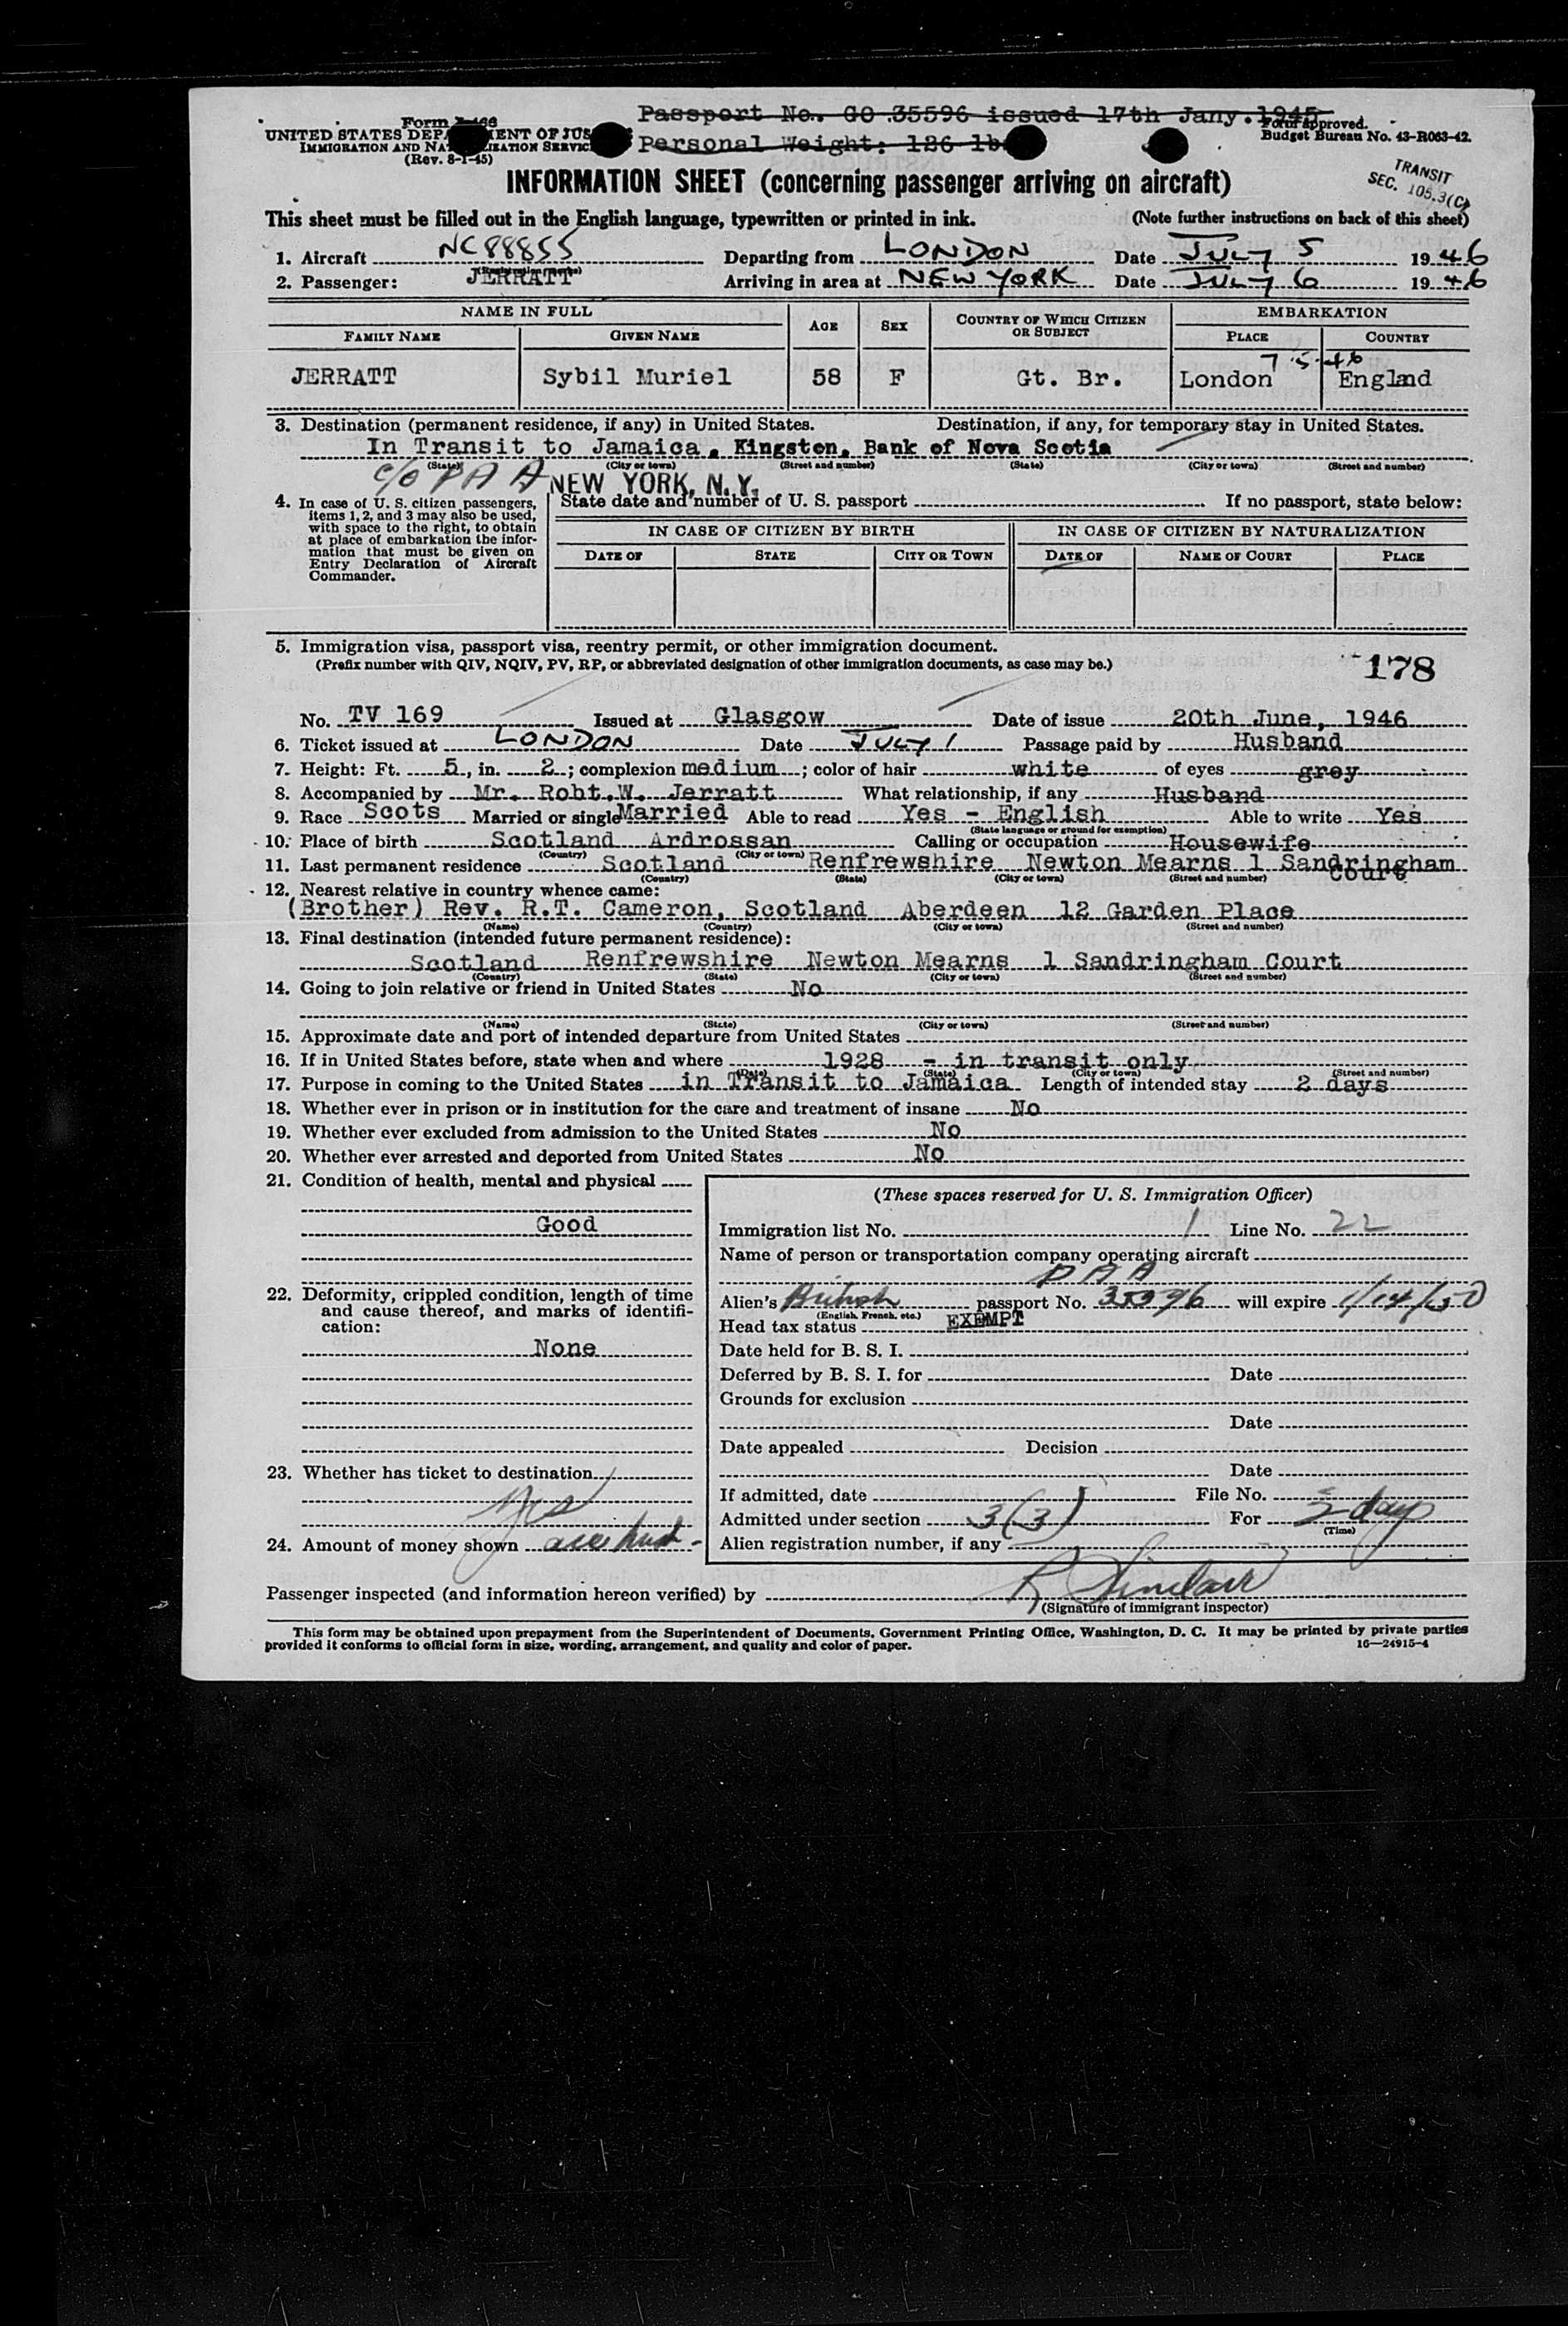 Passport No. GO 35596 issued 17th Jany. 1945
Form I-466
UNITED STATES DEPARTMENT OF JUSTICE
Form approved.
Personal Weight: 126 lb
IMMIGRATION AND NATURALIZATION SERVICE
Budget Bureau No. 43-R063-42.
(Rev. 8-1-45)
TRANSIT
SEC. 105.3(C)
INFORMATION SHEET (concerning passenger arriving on aircraft)
This sheet must be filled out in the English language, typewritten or printed in ink. (Note further instructions on back of this sheet)
1. Aircraft NC88855 Departing from LONDON Date JULY 5 1946
(Registration marks)
2. Passenger: JERRATT Arriving in area at NEW YORK Date JULY 6 1946
NAME IN FULL AGE SEX COUNTRY OF WHICH CITIZEN OR SUBJECT EMBARKATION
FAMILY NAME GIVEN NAME PLACE COUNTRY
7.5.46
JERRATT Sybil Muriel 58 F Gt. Br. London England
3. Destination (permanent residence, if any) in United States. Destination, if any, for temporary stay in United States.
In Transit to Jamaica, Kingston, Bank of Nova Scotia
(State) (City or town) (Street and number) (State) (City or town) (Street and number)
c/o PAA NEW YORK, N.Y.
4. In case of U. S. citizen passengers, items 1, 2, and 3 may also be used, with space to the right, to obtain at place of embarkation the information that must be given on Entry Declaration of Aircraft Commander.
State date and number of U. S. passport If no passport, state below:
IN CASE OF CITIZEN BY BIRTH IN CASE OF CITIZEN BY NATURALIZATION
DATE OF STATE CITY OR TOWN DATE OF NAME OF COURT PLACE
5. Immigration visa, passport visa, reentry permit, or other immigration document.
(Prefix number with QIV, NQIV, PV, RP, or abbreviated designation of other immigration documents, as case may be.)
178
No. TV 169 Issued at Glasgow Date of issue 20th June, 1946
6. Ticket issued at LONDON Date JULY 1 Passage paid by Husband
7. Height: Ft. 5, in. 2; complexion medium; color of hair white of eyes grey
8. Accompanied by Mr. Robt.W. Jerratt What relationship, if any Husband
9. Race Scots Married or single Married Able to read Yes - English Able to write Yes
(State language or ground for exemption)
10. Place of birth Scotland Ardrossan Calling or occupation Housewife
(Country) (City or town)
11. Last permanent residence Scotland Renfrewshire Newton Mearns 1 Sandringham Court
(Country) (State) (City or town) (Street and number)
12. Nearest relative in country whence came:
(Brother) Rev. R.T. Cameron, Scotland Aberdeen 12 Garden Place
(Name) (Country) (City or town) (Street and number)
13. Final destination (intended future permanent residence):
Scotland Renfrewshire Newton Mearns 1 Sandringham Court
(Country) (State) (City or town) (Street and number)
14. Going to join relative or friend in United States No
(Name) (State) (City or town) (Street and number)
15. Approximate date and port of intended departure from United States
16. If in United States before, state when and where 1928 - in transit only
(Date) (State) (City or town) (Street and number)
17. Purpose in coming to the United States in Transit to Jamaica Length of intended stay 2 days
18. Whether ever in prison or in institution for the care and treatment of insane No
19. Whether ever excluded from admission to the United States No
20. Whether ever arrested and deported from United States No
21. Condition of health, mental and physical
Good
22. Deformity, crippled condition, length of time and cause thereof, and marks of identification:
None
23. Whether has ticket to destination
Yes
24. Amount of money shown acc husb-
(These spaces reserved for U. S. Immigration Officer)
Immigration list No. 1 Line No. 22
Name of person or transportation company operating aircraft
PAA
Alien's British passport No. 35596 will expire 1/14/50
(English, French, etc.)
Head tax status EXEMPT
Date held for B. S. I.
Deferred by B. S. I. for Date
Grounds for exclusion
Date
Date appealed Decision
Date
If admitted, date File No.
Admitted under section 3(3) For 2 days
(Time)
Alien registration number, if any
Passenger inspected (and information hereon verified) by R Sinclair
(Signature of immigrant inspector)
This form may be obtained upon prepayment from the Superintendent of Documents, Government Printing Office, Washington, D. C. It may be printed by private parties
provided it conforms to official form in size, wording, arrangement, and quality and color of paper. 16—24915-4